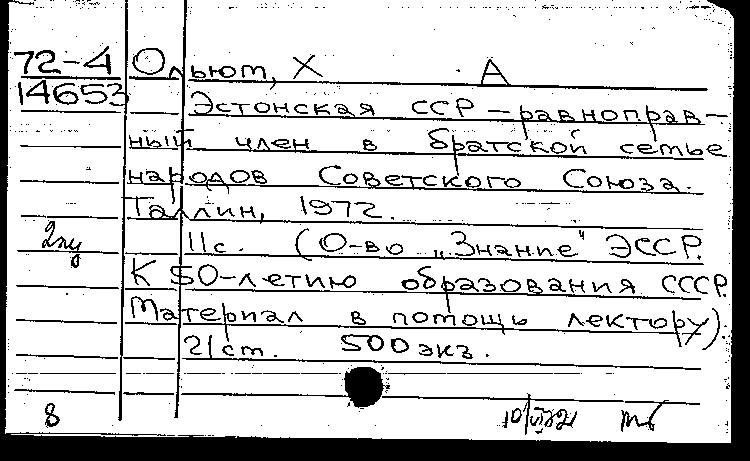 72-4 Ольют, Х А
14653 Эстонская ССР – равноправ-
ный член в братской семье
народов Советского Союза.
Таллин, 1972.
11с. (О-во „Знание" ЭССР.
К 50-летию образования СССР.
Материал в помощь лектору).
21 см. 500 экз.
8